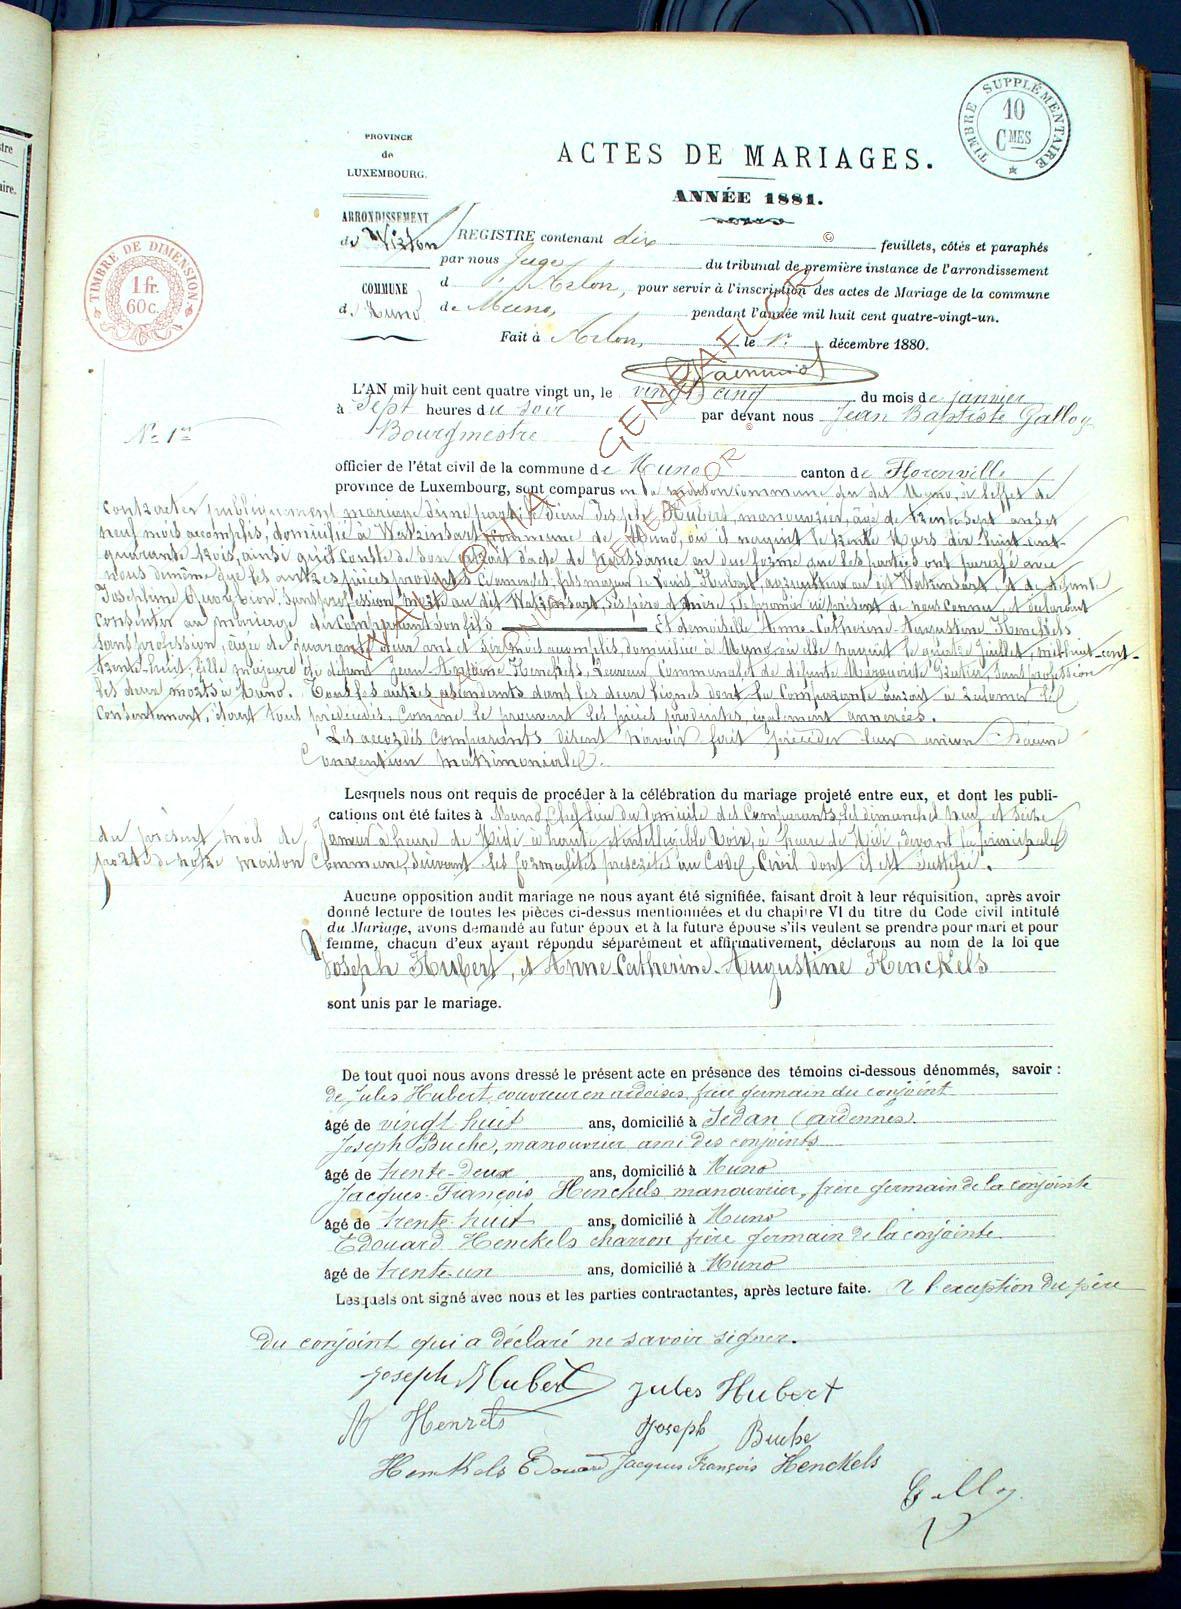 PROVINCE
de
LUXEMBOURG.
ARRONDISSEMENT
de Virton
COMMUNE
de Muno
TIMBRE SUPPLÉMENTAIRE
10
CMES
TIMBRE DE DIMENSION
1 fr.
60 c.
ACTES DE MARIAGES.
ANNÉE 1881.
REGISTRE contenant dix feuillets, côtés et paraphés
par nous Juge du tribunal de première instance de l'arrondissement
d'Arlon, pour servir à l'inscription des actes de Mariage de la commune
de Muno, pendant l'année mil huit cent quatre-vingt-un.
Fait à Arlon, le 1er décembre 1880.
L'AN mil huit cent quatre vingt un, le vingt cinq du mois de janvier
à Sept heures du soir par devant nous Jean Baptiste Galloy
No 1er
Bourgmestre
officier de l'état civil de la commune de Muno canton de Florenville
province de Luxembourg, sont comparus en la maison commune du dit Muno, à l'effet de
contracter publiquement mariage d'une part le sieur Joseph Hubert, manouvrier, âgé de trente sept ans et
neuf mois accomplis, domicilié à Watrinsart, commune de Muno, où il naquit le trente Mars dix huit cent
quarante trois, ainsi qu'il conste de son extrait d'acte de Naissance en due forme que les parties ont
nous de même que les autres pièces produites, fils majeur de Louis Hubert, au dit Watrinsart, et de défunte
Joséphine sans profession, morte au dit Watrinsart, ses père et mère, le premier ici présent de nous connu, et déclarant
consentir au mariage du comparant son fils Et demoiselle Anne-Catherine-Augustine Henckels
sans profession, âgée de quarante deux ans et six mois accomplis, domiciliée à Muno où elle naquit le quatre Juillet, mil huit-cent-
trente-huit, fille majeure de défunt Jean-Antoine Henckels, et de défunte Marguerite sans profession
les deux morts à Muno. Tous les autres ascendants dans les deux lignes dont la comparante aurait à
consentement, étant tous prédécédés, comme le prouvent les pièces produites, également annexées.
Les accordés comparants disent n'avoir fait précéder leur union d'aucune
Convention matrimoniale.
Lesquels nous ont requis de procéder à la célébration du mariage projeté entre eux, et dont les publi-
cations ont été faites à Muno, Chef-lieu du domicile des Comparants, les dimanches neuf et seize
du présent mois de Janvier à heure de Midi à haute et intelligible Voix, à heure de Midi, devant la principale
porte de notre maison Commune, suivant les formalités prescrites au Code Civil dont il est Justifié.
Aucune opposition audit mariage ne nous ayant été signifiée, faisant droit à leur réquisition, après avoir
donné lecture de toutes les pièces ci-dessus mentionnées et du chapitre VI du titre du Code civil intitulé
du Mariage, avons demandé au futur époux et à la future épouse s'ils veulent se prendre pour mari et pour
femme, chacun d'eux ayant répondu séparément et affirmativement, déclarons au nom de la loi que
Joseph Hubert, et Anne-Catherine-Augustine Henckels
sont unis par le mariage.
De tout quoi nous avons dressé le présent acte en présence des témoins ci-dessous dénommés, savoir :
de Jules Hubert, couvreur en ardoises, frère germain du conjoint
âgé de vingt huit ans, domicilié à Sedan (ardennes)
Joseph Buche, manouvrier ami des conjoints
âgé de trente-deux ans, domicilié à Muno
Jacques-François Henckels manouvrier, frère germain de la conjointe
âgé de trente-huit ans, domicilié à Muno
Edouard Henckels charron frère germain de la conjointe
âgé de trente-un ans, domicilié à Muno
Lesquels ont signé avec nous et les parties contractantes, après lecture faite. A l'exception du père
du conjoint qui a déclaré ne savoir signer.
Joseph Hubert Jules Hubert
Joseph Buche
Henckels Edouard Jacques François Henckels
Galloy
© WALLONIA GENEAFLOR